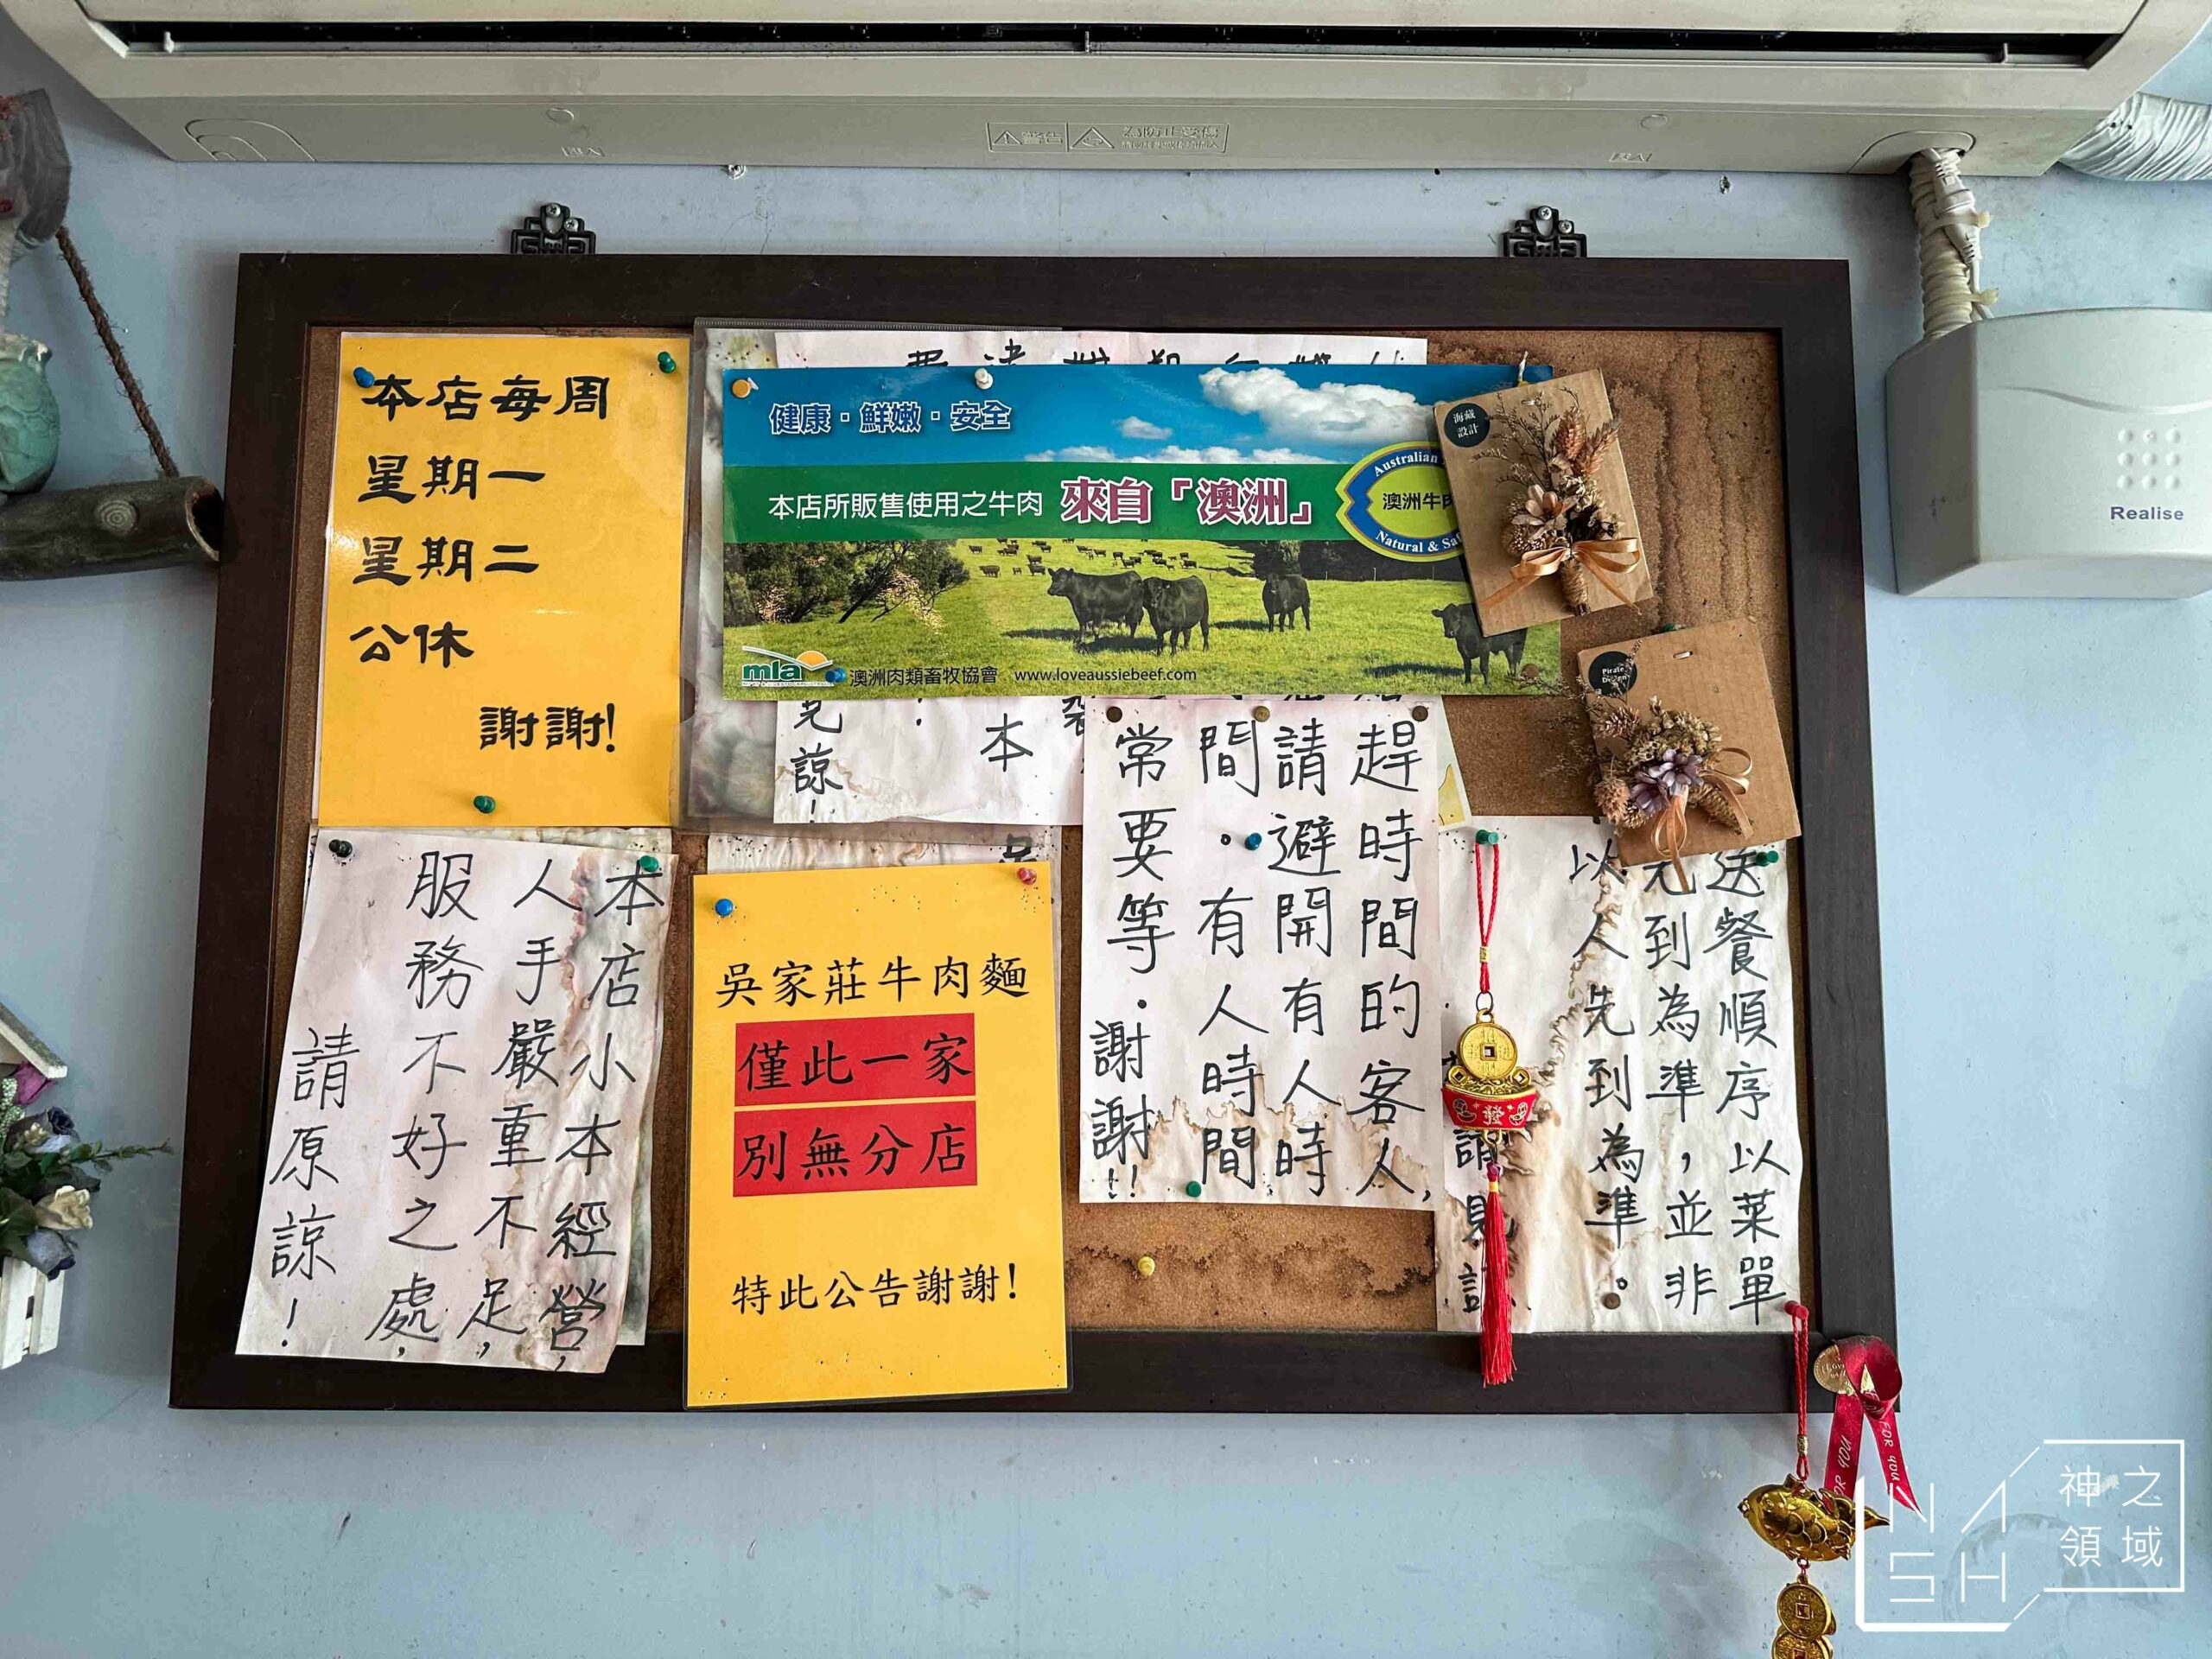 本店每周
星期一
星期二
公休
謝謝!
健康·鮮嫩·安全
本店所販售使用之牛肉 來自「澳洲」
Australian
澳洲牛
Natural &
mla
澳洲肉類畜牧協會 www.loveaussiebeef.com
海藏
設計
Pirate
本
諒!
趕時間的客人,
請避開有人時
間。有人時間
常要等.
謝謝!!
送餐順序以菜單
先到為準,並非
以人先到為準。
請見諒
本店小本經營,
人手嚴重不足,
服務不好之處,
請原諒!
吳家莊牛肉麵
僅此一家
別無分店
特此公告謝謝!
發
Realise
FOR YOU
FOR YOU
NASH
神之
領域